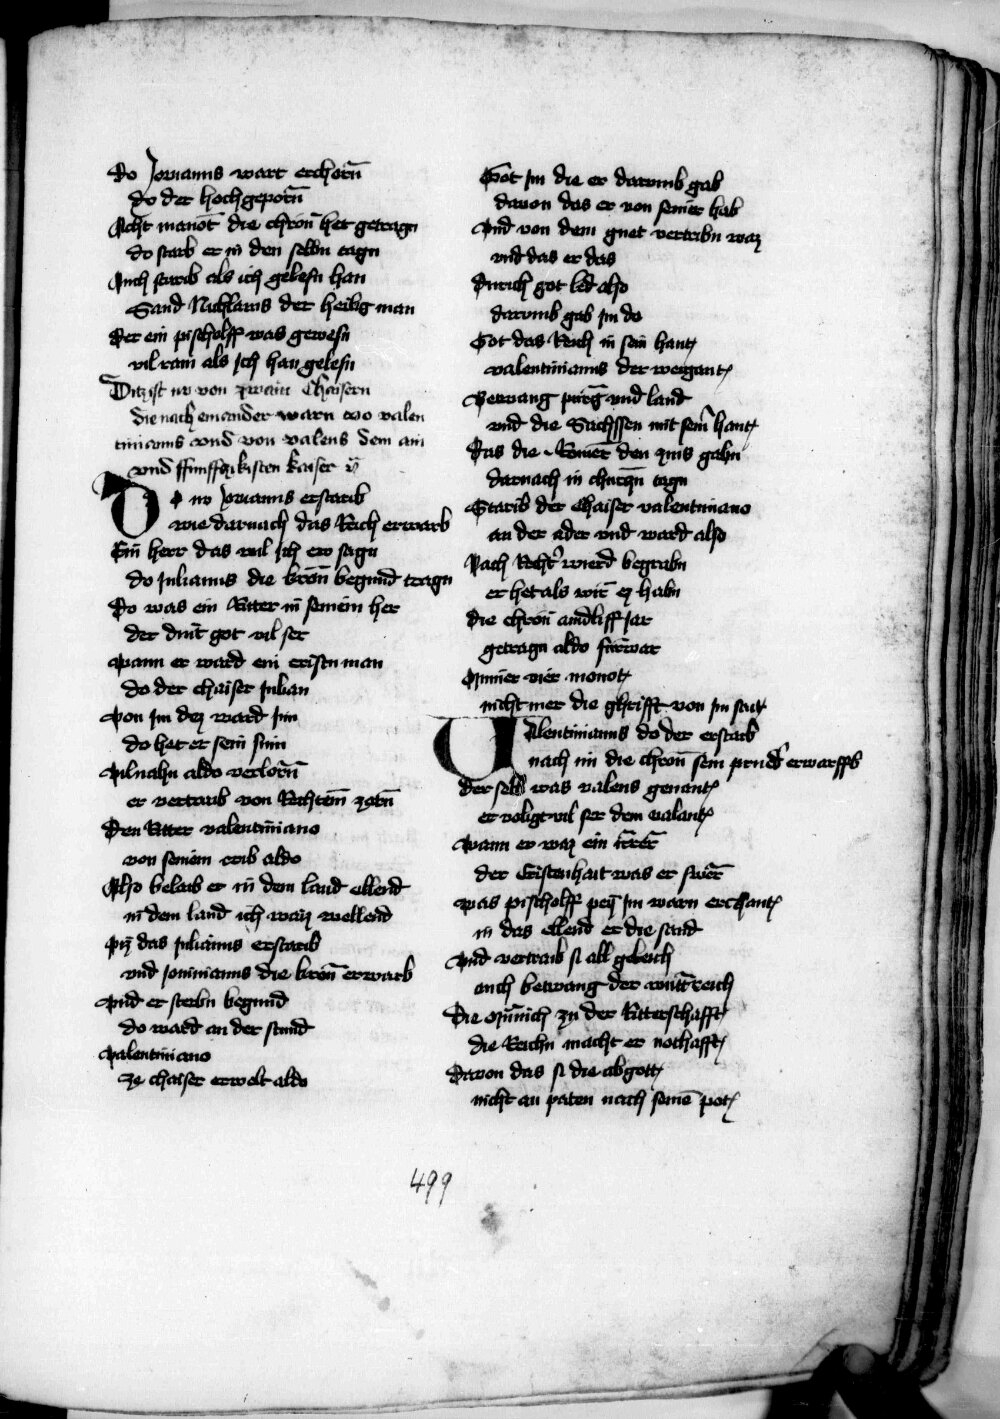 Do Jovianus wart erchorñ
do der hochgeporñ
Acht manot die chron het getragn
do starb er in den selbn tagn
Auch starib als ich gelesn han
Sand Nicklaws der heilig man
der ein pischolff was gewesn
vil rain als Jch han gelesn
Ditz ist nv von zwain Chaisern
die nach einander warn vo valen
tinianus vnd von valens dem ain
vnd ffunffczikisten kaiser
Do nv Jovianus erstarib
wie darnach das Reich erwarb
Ein herr das wil Jch ew sagn
do Julianus die kron begund tragn
Do was ein Ritter in seinem her
der dint got vil ser
wann er ward ein cristn man
do der chaiser Julian
Von im dez ward Jnn
do het er sein sinn
Vilnahn aldo verlorn
er vertraib von Rechtem zorn
Den Ritter valentiniano
von seinem weib aldo
Also belaib er in dem land ellend
in dem land ich waiz wellend
piz das Julianus erstarib
vnd Jovinianus die kron erwarb
vnd er sterbn begund
do ward an der stund
valentiniano
ze chaiser erwelt aldo
Got im die er darumb gab
davon das er von seiner hab
Vnd von dem guet vertribn waz
vnd das er das
Durich got led also
darumb gab im do
Got das Reich in sein hant
valentinianus der weigant
Betwang purg vnd land
vnd die Sachssen mit seinr hant
das die Romer den zins gabn
darnach in churczn tagn
Starib der Chaiser valentiniano
an der ader vnd ward also
Nach Recht wierd begrabn
er het als wir ez habn
Die chron aindliff Jar
getragn aldo furwar
Minner vier monot
nicht mer die gschrifft von im sait
Valentinianus do der erstarb
nach im die chron sein prudr erwarffb
der selb was valens genant
er voligt vil ser dem valant
wann er waz ein irrer
der Cristenhait was er swer
was pischolff pey im warn erchant
in das ellend er die sand
Vnd vertraib si all geleich
auch betwang der wuttreich
Die Munich zu der Ritterschafft
die Reichn macht er nothafft
Davon das si die abgott
nicht an paten nach seinē pot
499